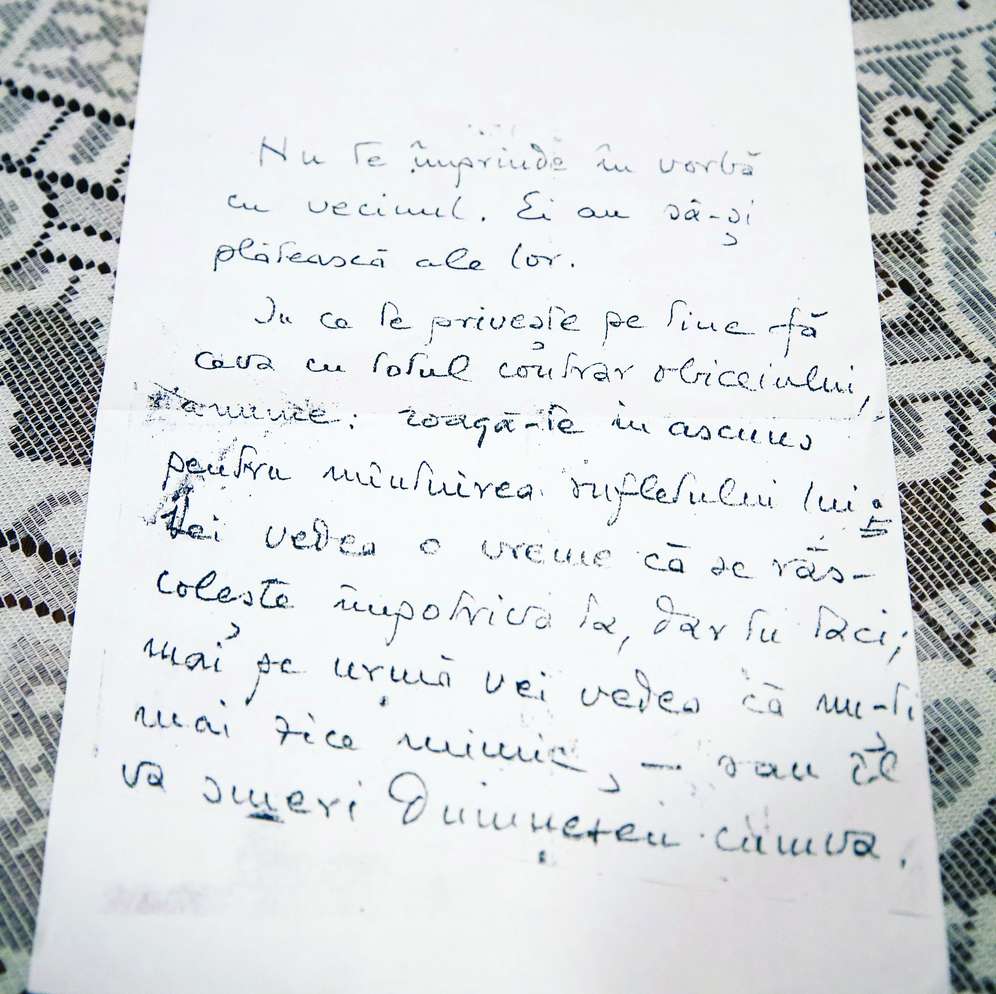 Nu te împrinde în vorbă
cu vecinul. Ei au să-și
plătească ale lor.
In ce te privește pe tine fă
ceva cu totul contrar obiceiului,
anume: roagă-te în ascuns
pentru mîntuirea sufletului lui.
Vei vedea o vreme că se răs-
colește împotriva ta, dar tu taci;
mai pe urmă vei vedea că nu-ți
mai zice nimic, – sau îl
va smeri Dumnezeu cumva.